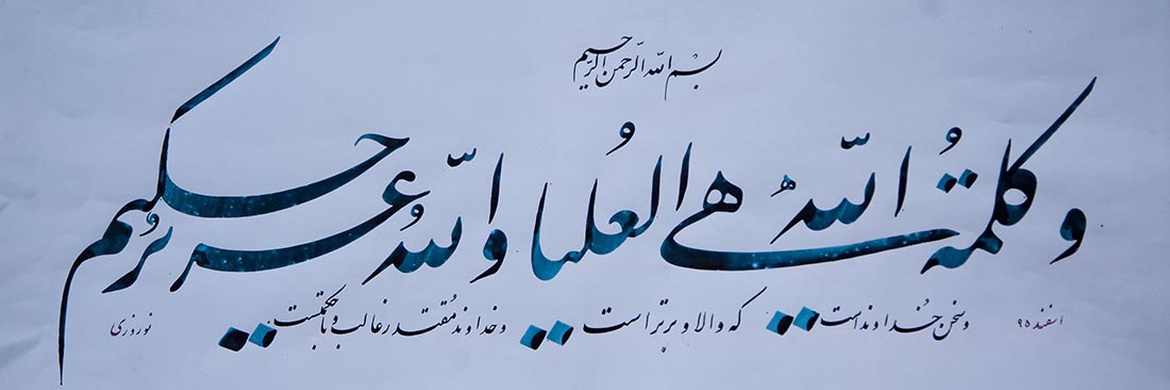 بسم الله الرحمن الرحیم
وکلمة الله هي العُليا والله عزيز حكيم
اسفند ۹۵ وسخن خُداوند است که والا و برتر است وخداوند مُقتدر غالب و با حکمتست نوروزی